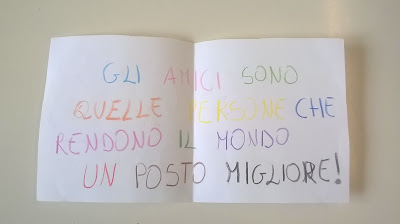 GLI AMICI SONO
QUELLE PERSONE CHE
RENDONO IL MONDO
UN POSTO MIGLIORE!